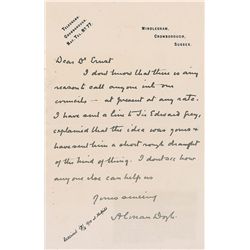 TELEGRAMS
CROWBOROUGH.
NAT. TEL. No 77.
WINDLESHAM,
CROWBOROUGH,
SUSSEX.
Dear Dr
I dont know that there is any
reason to call anyone into our
councils – at present at any rate.
I have sent a line to Sir Edward Grey,
explained that the idea was yours &
have sent him a short rough draught
of the kind of thing. I dont see how
any one else can help us
Yours sincerely
A Conan Doyle